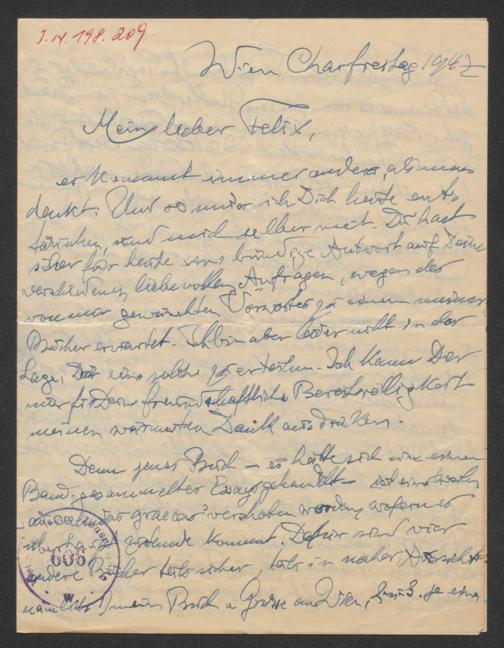 J. N. 198.209
Wien Charfreitag 1947
Mein lieber Felix,
es kommt immer anders, als man
denkt. Und so muss ich Dich heute ent-
täuschen, und mich selber mit. Du hast
sicher für heute eine bündige Antwort auf Deine
verschiedenen liebevollen Anfragen, wegen des
von mir gewünschten Vorwortes zu einem meiner
Bücher erwartet. Ich bin aber leider nicht in der
Lage, Dir eine solche zu erteilen. Ich kann Dir
nur für Deine freundschaftliche Bereitwilligkeit
meinen wärmsten Dank ausdrücken.
Denn jenes Buch – es hätte sich um einen
Band gesammelter Essays gehandelt – ist einstweilen
"ad calendas graecas" verschoben worden, wofern es
überhaupt zustande kommt. Dafür sind vier
andere Bücher teils sicher, teils in naher Aussicht:
nämlich mein Buch
605
W.